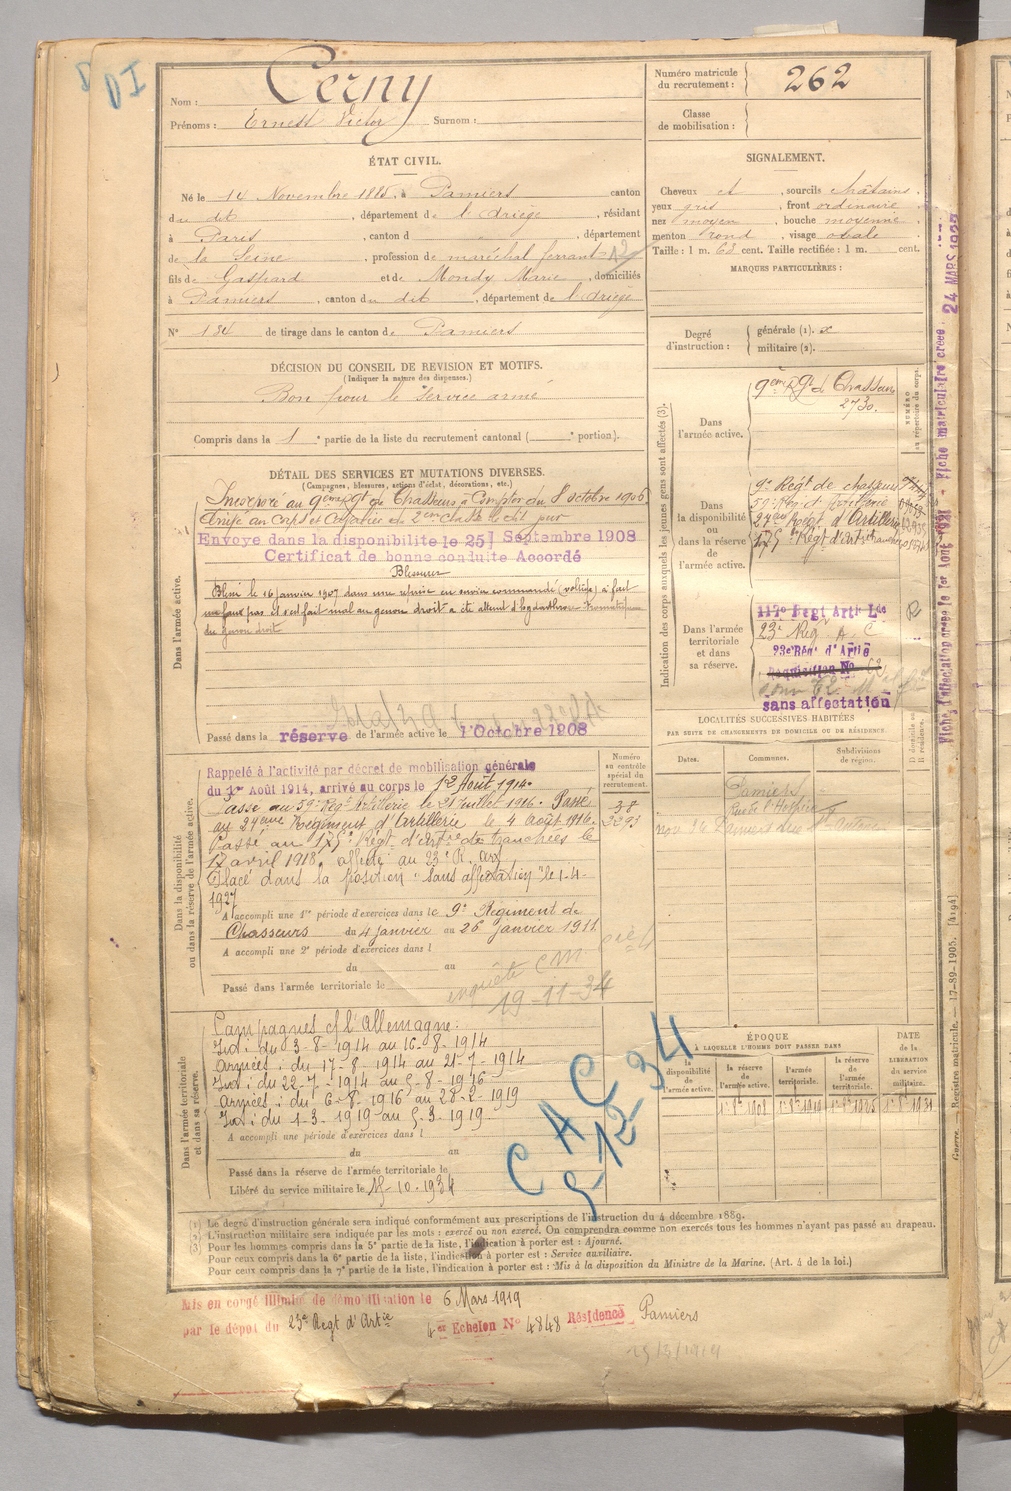 DI
Nom : Cerny
Prénoms : Ernest Victor Surnom :
Numéro matricule du recrutement : 262
Classe de mobilisation :
ÉTAT CIVIL.
Né le 14 Novembre 1885, à Pamiers canton
du dit, département de l'Ariège, résidant
à Paris, canton d , département
de la Seine, profession de maréchal ferrant
fils de Gaspard et de Mondy Marie, domiciliés
à Pamiers, canton du dit, département de l'Ariège
N° 134 de tirage dans le canton de Pamiers
SIGNALEMENT.
Cheveux et sourcils châtains
yeux gris, front ordinaire
nez moyen, bouche moyenne
menton rond, visage ovale
Taille : 1 m. 63 cent. Taille rectifiée : 1 m. cent.
MARQUES PARTICULIÈRES :
Degré d'instruction : générale (1).
militaire (2).
DÉCISION DU CONSEIL DE REVISION ET MOTIFS.
(Indiquer la nature des dispenses.)
Bon pour le service armé
Compris dans la 1e partie de la liste du recrutement cantonal ( e portion).
DÉTAIL DES SERVICES ET MUTATIONS DIVERSES.
(Campagnes, blessures, actions d'éclat, décorations, etc.)
Dans l'armée active.
Incorporé au 9eme Rgt de Chasseurs à Compter du 8 octobre 1906
Arrivé au corps et Cavalier de 2eme classe le dit jour
Envoyé dans la disponibilité le 25 Septembre 1908
Certificat de bonne conduite Accordé
Blessures
Blessé le 16 janvier 1907 dans une reprise en service commandé (voltige) a fait
un faux pas et s'est fait mal au genou droit a été atteint d'hydarthrose
du genou droit
Passé dans la réserve de l'armée active le 1 Octobre 1908
Dans la disponibilité ou dans la réserve de l'armée active.
Rappelé à l'activité par décret de mobilisation générale
du 1er Août 1914, arrivé au corps le 12 Août 1914.
Passé au 59e Régt Artillerie le 21 juillet 1916. Passé
au 24eme Régiment d'Artillerie le 4 août 1916.
Passé au 175e Régt d'artie de tranchées le
17 avril 1918. affecté au 23e R.
Placé dans la position "Sans affectation" le 1-4-
1927
A accompli une 1re période d'exercices dans le 9e Régiment de
Chasseurs du 4 janvier au 26 janvier 1911
A accompli une 2e période d'exercices dans l
du au
Passé dans l'armée territoriale le
enquête CM
19-11-34
Numéro au contrôle spécial du recrutement.
38
3293
Dans l'armée territoriale et dans sa réserve.
Campagnes ct l'Allemagne :
Int : du 3-8-1914 au 16-8-1914
Armées : du 17-8-1914 au 21-7-1914
Int : du 22-7-1914 au 5-8-1916
Armées : du 6-8-1916 au 28-2-1919
Int : du 1-3-1919 au 5-3-1919
A accompli une période d'exercices dans l
du au
Passé dans la réserve de l'armée territoriale le
Libéré du service militaire le 15-10-1934
CAC
5-12-34
Indication des corps auxquels les jeunes gens sont affectés (3).
NUMÉRO au répertoire du corps.
Dans l'armée active.
9eme Rgt de Chasseurs
2730.
Dans la disponibilité ou dans la réserve de l'armée active.
9e Régt de chasseurs
59e Rég d'Artillerie
24eme Régt d'Artillerie
175e Régt d'artie
Dans l'armée territoriale et dans sa réserve.
117e Regt Artie Lde
23e Reg. A. C
23e Rég. d'Artie
Requisition No 63
sans affectation
LOCALITÉS SUCCESSIVES HABITÉES
PAR SUITE DE CHANGEMENTS DE DOMICILE OU DE RÉSIDENCE.
Dates. Communes. Subdivisions de région. D domicile ou R résidence.
Pamiers
Rue de l'Hospice
nov 34 Pamiers
ÉPOQUE
À LAQUELLE L'HOMME DOIT PASSER DANS
la disponibilité de l'armée active. la réserve de l'armée active. l'armée territoriale. la réserve de l'armée territoriale.
DATE de la LIBÉRATION du service militaire.
Fiche d'affectation créée le 1er Août 1921 - Fiche matriculaire créée
24 MARS 1927
Guerre. — Registre matricule. — 17-89-1905. [4194]
(1) Le degré d'instruction générale sera indiqué conformément aux prescriptions de l'instruction du 4 décembre 1889.
(2) L'instruction militaire sera indiquée par les mots : exercé ou non exercé. On comprendra comme non exercés tous les hommes n'ayant pas passé au drapeau.
(3) Pour les hommes compris dans la 5e partie de la liste, l'indication à porter est : Ajourné.
Pour ceux compris dans la 6e partie de la liste, l'indication à porter est : Service auxiliaire.
Pour ceux compris dans la 7e partie de la liste, l'indication à porter est : Mis à la disposition du Ministre de la Marine. (Art. 4 de la loi.)
Mis en congé illimité de démobilisation le 6 Mars 1919
par le dépôt du 23e Regt d'Artie 4e Echelon N° 4848 Résidence Pamiers
25/3/1919